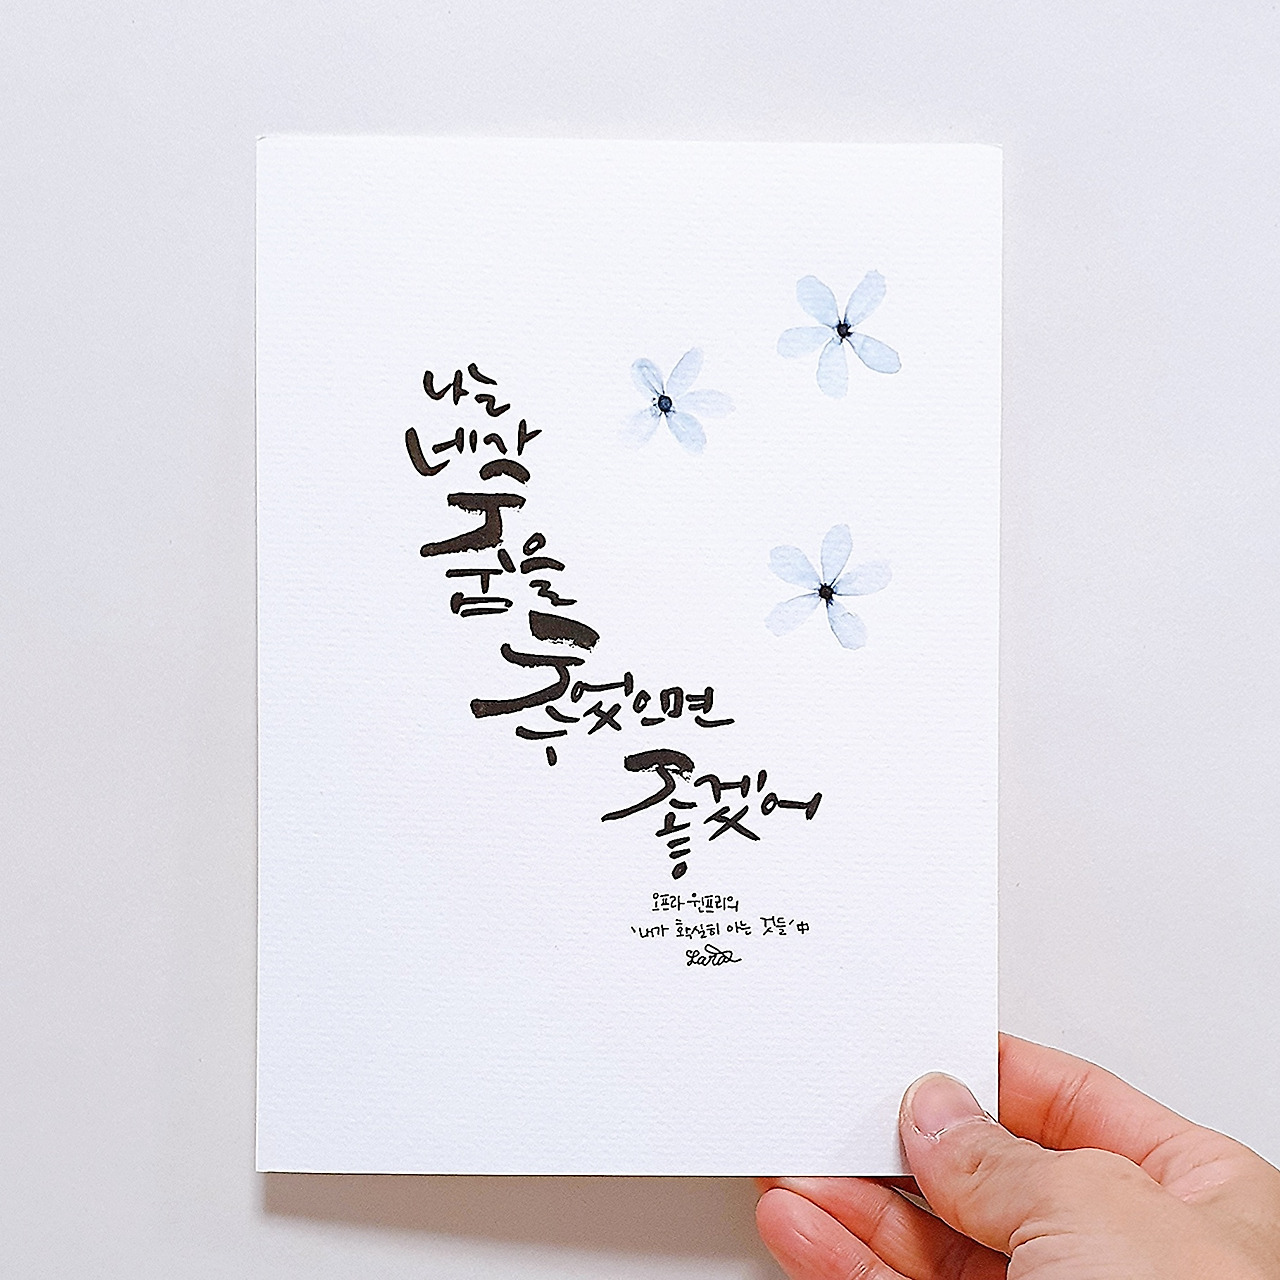 나는
네가
춤을
추었으면
좋겠어
오프라 윈프리의
'내가 확실히 아는 것들' 中
Lara